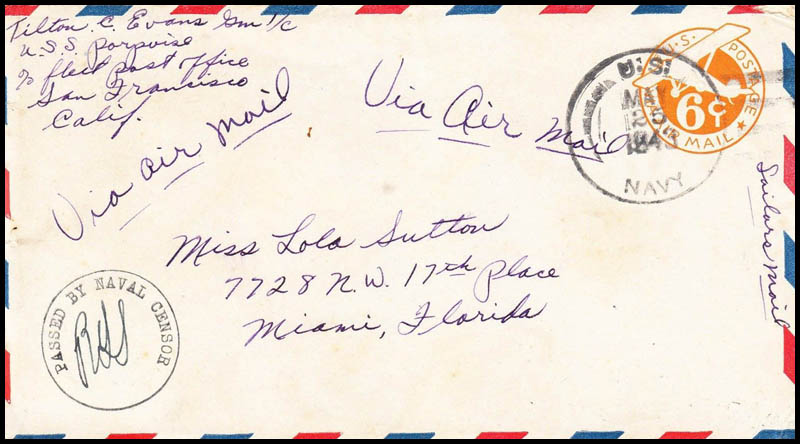 Tilton. C. Evans Gm 1/c
U.S.S. Porpoise
c/o fleet post office
San Francisco
Calif.
Via air mail
Via Air Mail
U.S. POSTAGE
6¢
AIR MAIL
U.S.
MAY
NAVY
Sailors Mail
Miss Lola Sutton
7728 N.W. 17th Place
Miami, Florida
PASSED BY NAVAL CENSOR